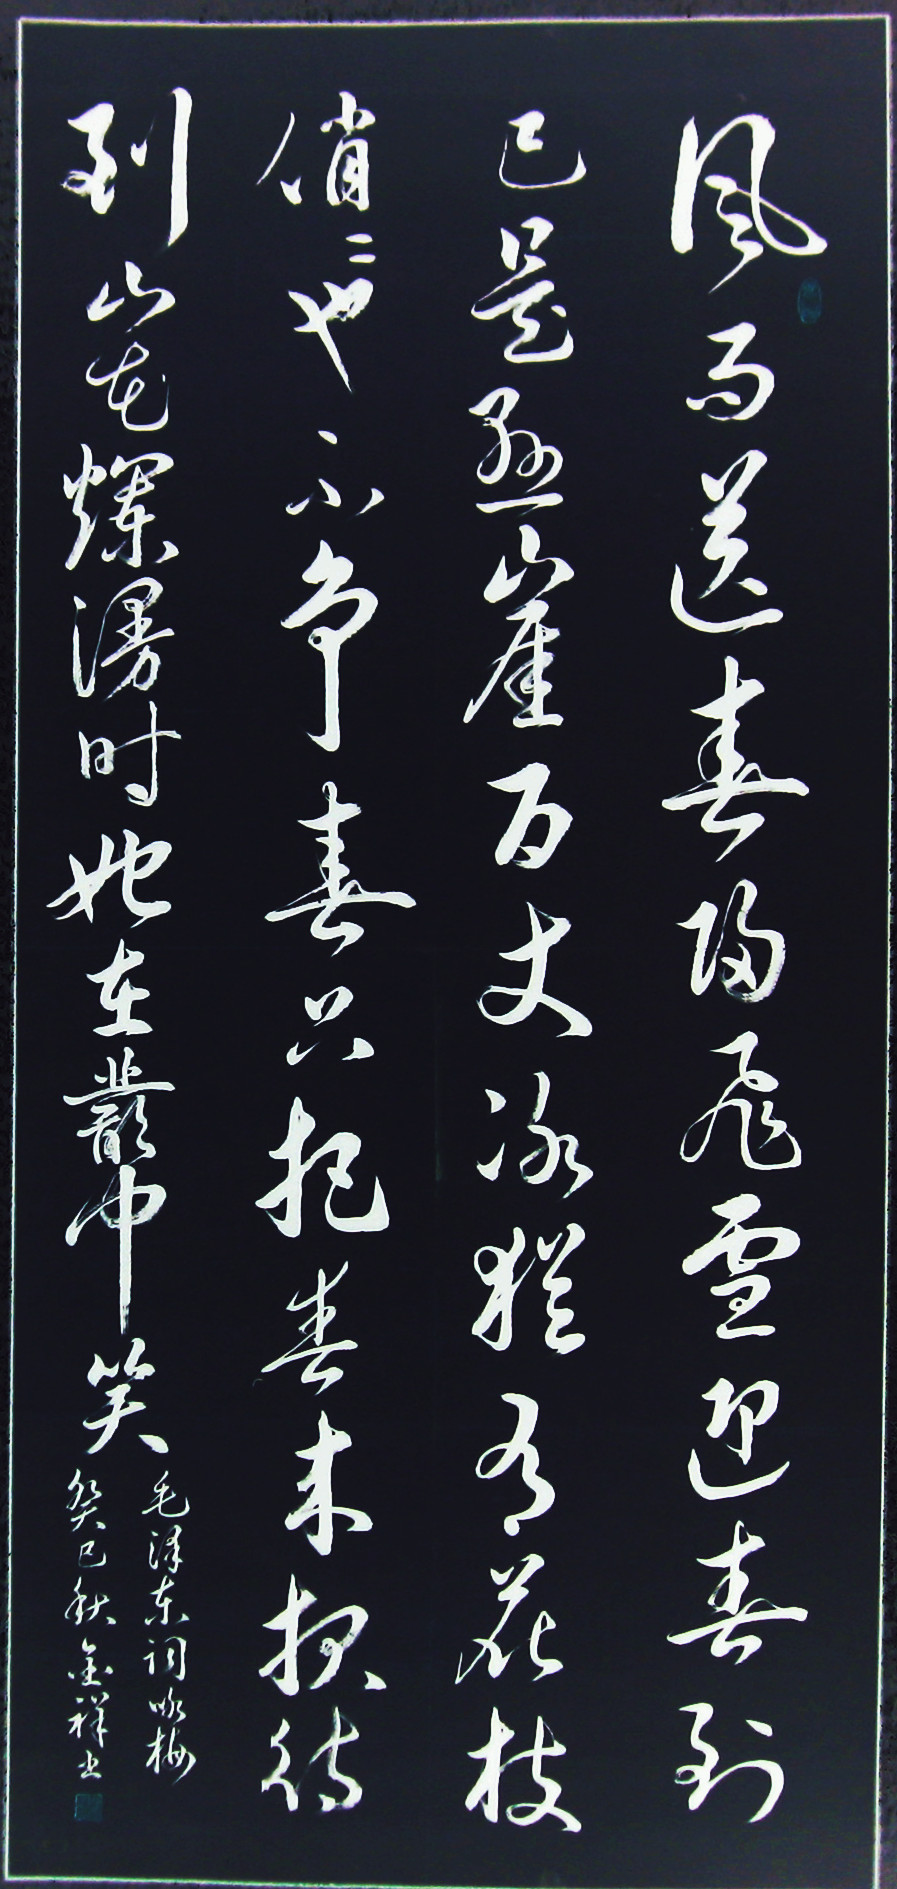 风雨送春归飞雪迎春到
已是悬崖百丈冰猶有花枝
俏〻也不争春只把春来报待
到山花爛漫时她在叢中笑
毛泽东词咏梅
癸巳秋金祥书